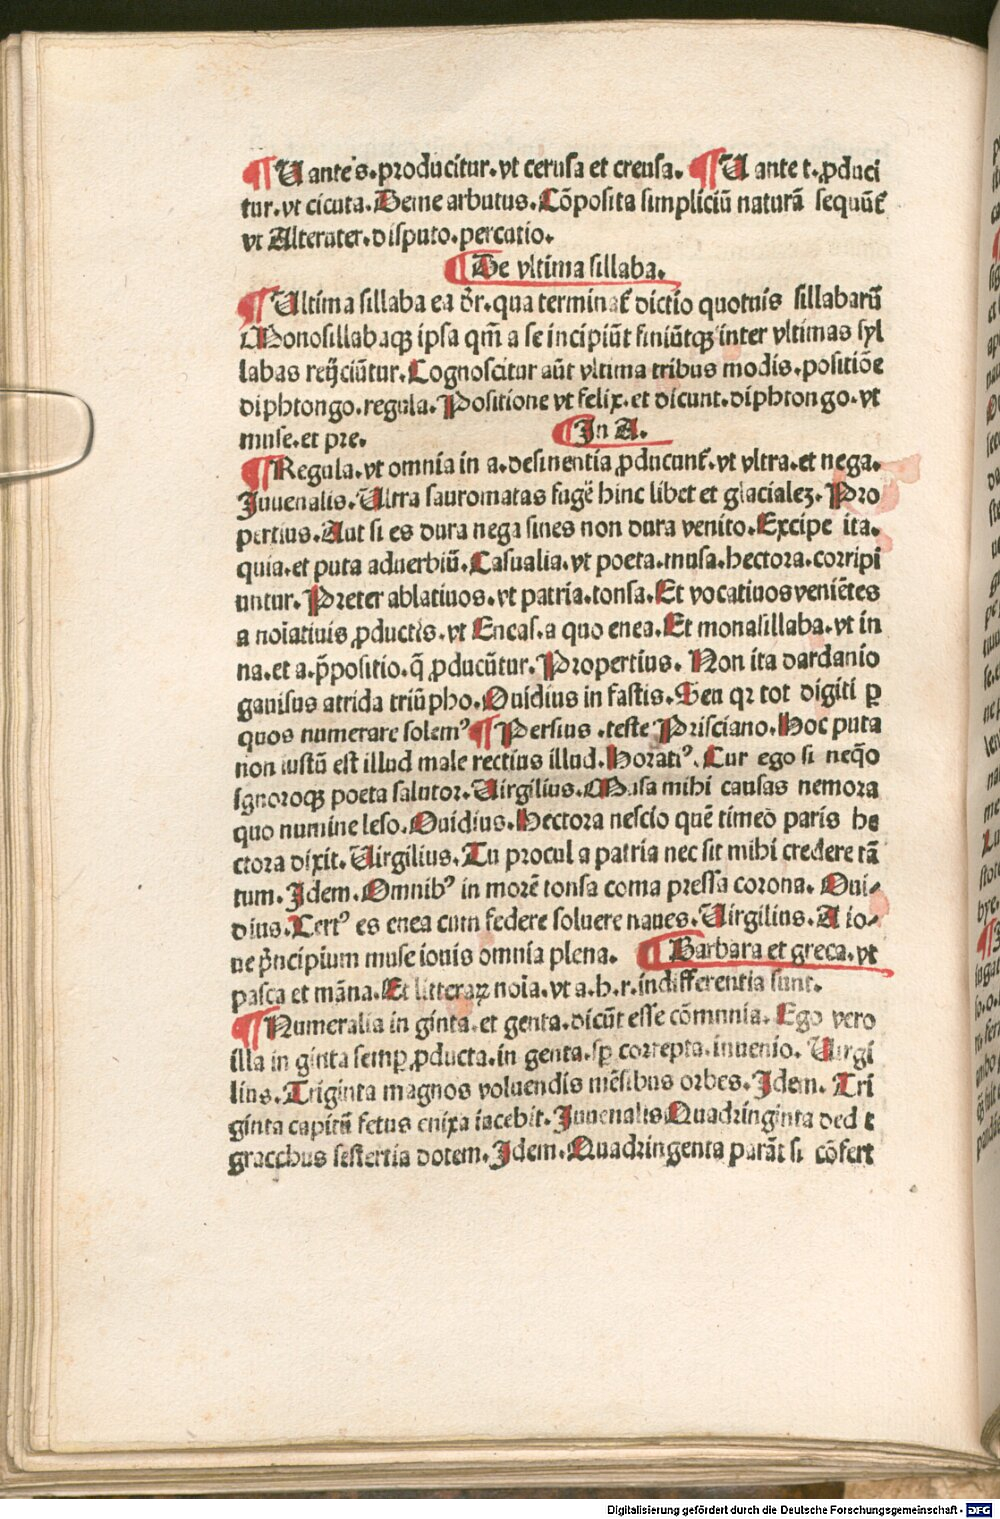 ¶ U ante s. producitur. vt cerusa et creusa. ¶ U ante t. ꝓduci
tur. vt cicuta. Deme arbutus. Cōposita simpliciū naturā sequūt᷑
vt Alteruter. disputo. percutio.
¶ De vltima sillaba.
¶ Ultima sillaba ea dr̄. qua terminat᷑ dictio quotuis sillabarū
Monosillabaqꝫ ipsa qm̄ a se incipiūt finiūtqꝫ inter vltimas syl
labas reijciūtur. Cognoscitur aūt vltima tribus modis. positiōe
diphtongo. regula. Positione vt felix. et dicunt. diphtongo. vt
muse. et pre.
¶ In A.
¶ Regula. vt omnia in a. desinentia ꝓducunt᷑. vt vltra. et nega.
Juuenalis. Ultra sauromatas fugē hinc libet et glacialeꝫ. Pro
pertius. Aut si es dura nega sines non dura venito. Excipe ita.
quia. et puta aduerbiū. Casualia. vt poeta. musa. hectora. corripi
untur. Preter ablatiuos. vt patria. tonsa. Et vocatiuos veniētes
a noīatiuis ꝓductis. vt Eneas. a quo enea. Et monasillaba. vt in
na. et a. p̄positio. q̄ ꝓducūtur. Propertius. Non ita dardanio
gauisus atrida triūpho. Ouidius in fastis. Seu qꝛ tot digiti ꝑ
quos numerare solemꝰ ¶ Persius. teste Prisciano. Hoc puta
non iustū est illud male rectius illud. Horatiꝰ. Cur ego si neqͦo
ignoroqꝫ poeta salutor. Uirgilius. Musa mihi causas nemora
quo numine leso. Ouidius. Hectora nescio quē timeo paris he
ctora dixit. Uirgilius. Tu procul a patria nec sit mihi credere tā
tum. Jdem. Omnibꝰ in morē tonsa coma pressa corona. Oui-
dius. Certꝰ es enea cum federe soluere naues. Uirgilius. A io-
ue p̄ncipium muse iouis omnia plena. ¶ Barbara et greca. vt
pasca et māna. Et litteraꝝ noīa. vt a. b. r. indifferentia sunt.
¶ Numeralia in ginta. et genta. dicūt esse cōmunia. Ego vero
illa in ginta semꝑ ꝓducta. in genta. sꝑ correpta. inuenio. Uirgi
lius. Triginta magnos voluendis mēsibus orbes. Jdem. Tri
ginta capitū fetus enixa iacebit. Juuenalis Quadringinta ded t
gracchus sestertia dotem. Jdem. Quadringenta parāt si cōfert
Digitalisierung gefördert durch die Deutsche Forschungsgemeinschaft - DFG